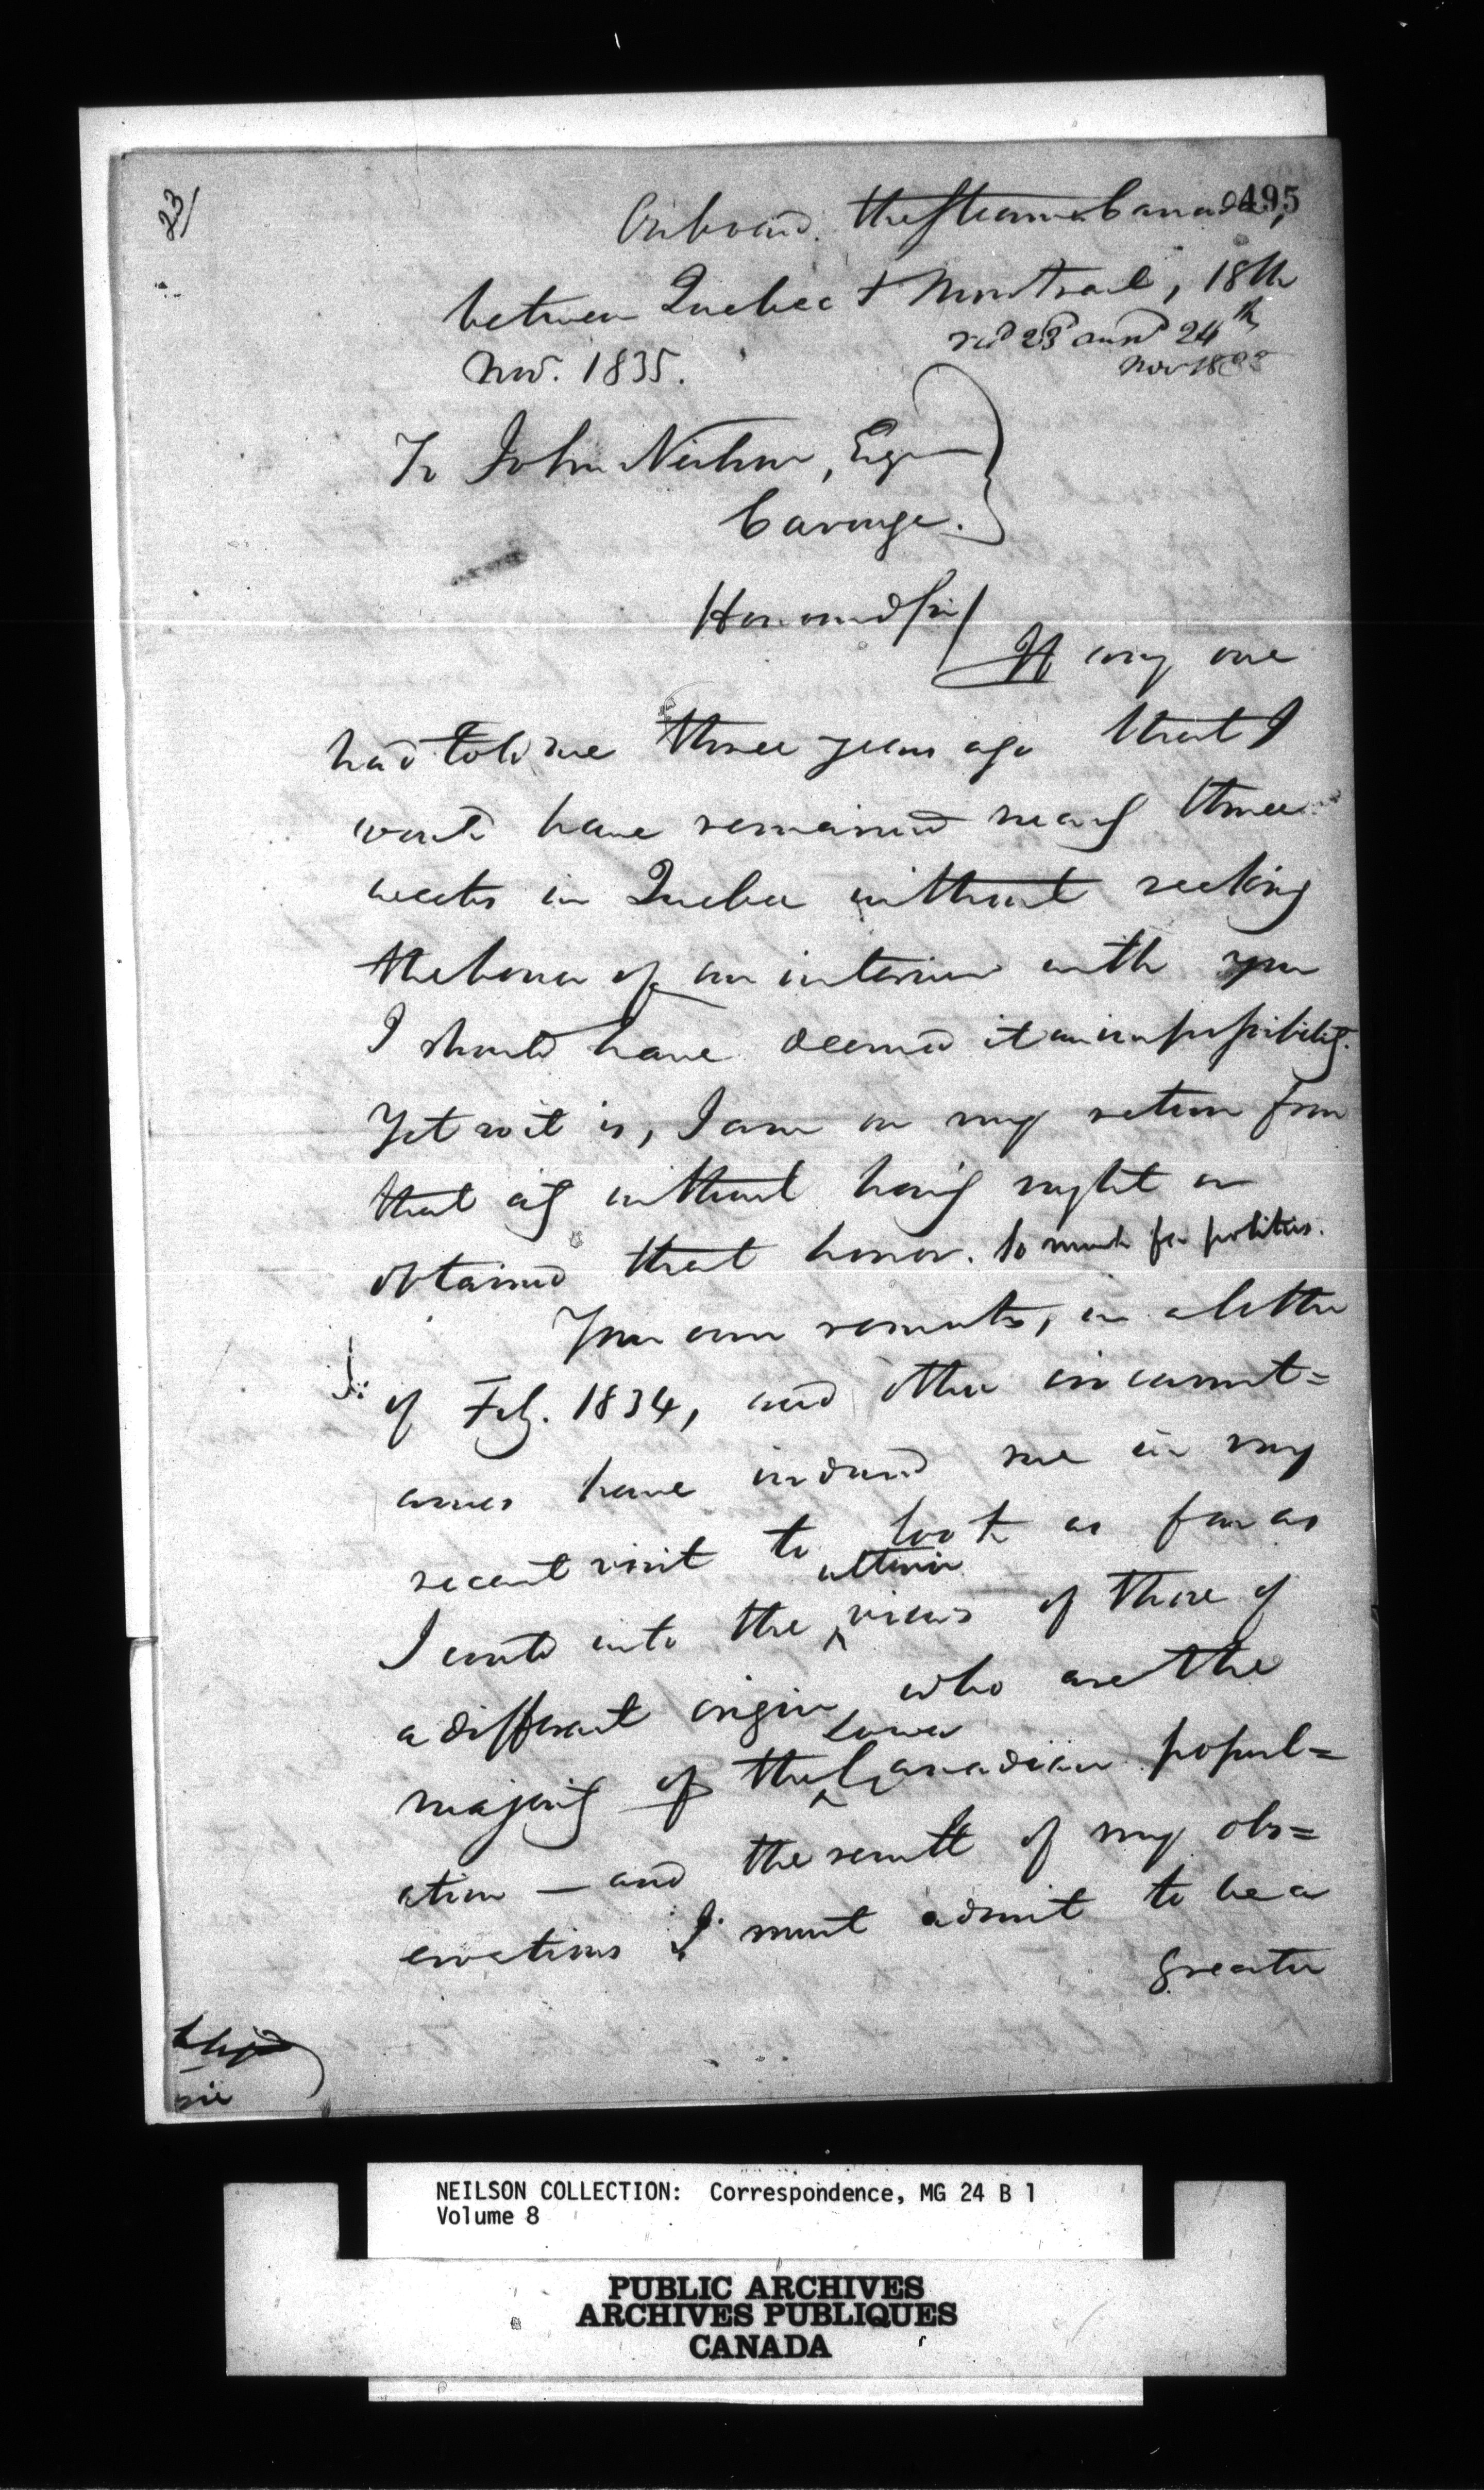 23/
495
On board the Steamer Canada,
between Quebec & Montreal, 18th
Nov. 1835.
red 23d ansd 24th
Nov 1835
To John Neilson, Esqr
Carouge.
Honoured Sir/
If any one
had told me three years ago that I
would have remained nearly three
weeks in Quebec without seeking
the honor of an interview with you
I should have deemed it an impossibility.
Yet so it is, I am on my return from
that city without having sought or
obtained that honor. So much for politics.
Your own remarks, in a letter
of Feby. 1834, and other circumst=
ances have induced me in my
recent visit to look as far as
I could into the ulterior views of those of
a different origin who are the
majority of the Lower Canadian popul=
ation — and the result of my obs=
ervations I must admit to be a
greater
NEILSON COLLECTION: Correspondence, MG 24 B 1
Volume 8
PUBLIC ARCHIVES
ARCHIVES PUBLIQUES
CANADA